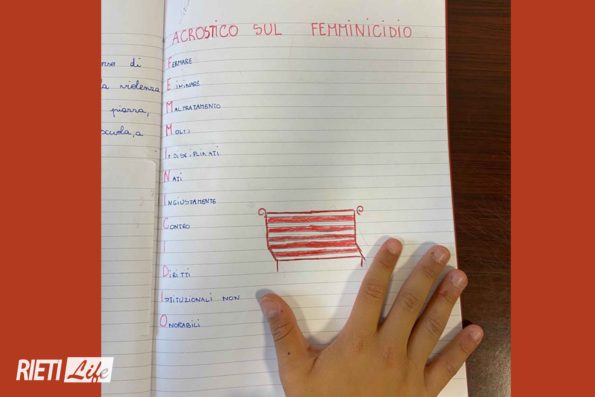 ACROSTICO SUL FEMMINICIDIO
di
FERMARE
la violenza
ELIMINARE
piazza,
MALTRATAMENTO
scuola, a
MOLTI
INDISCIPLINATI
NATI
INGIUSTAMENTE
CONTRO
I
DIRITTI
ISTITUZIONALI NON
ONORABILI
RIETI Life